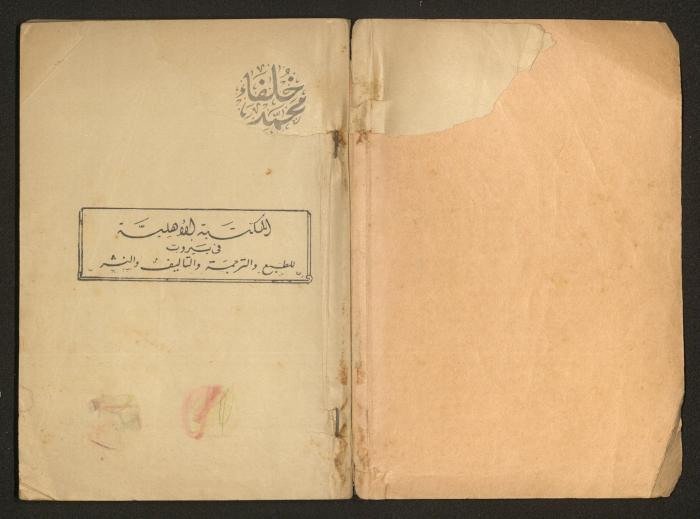 خلفاء
محمد
المكتبة الأهلية
في بيروت
للطبع والترجمة والتأليف والنشر